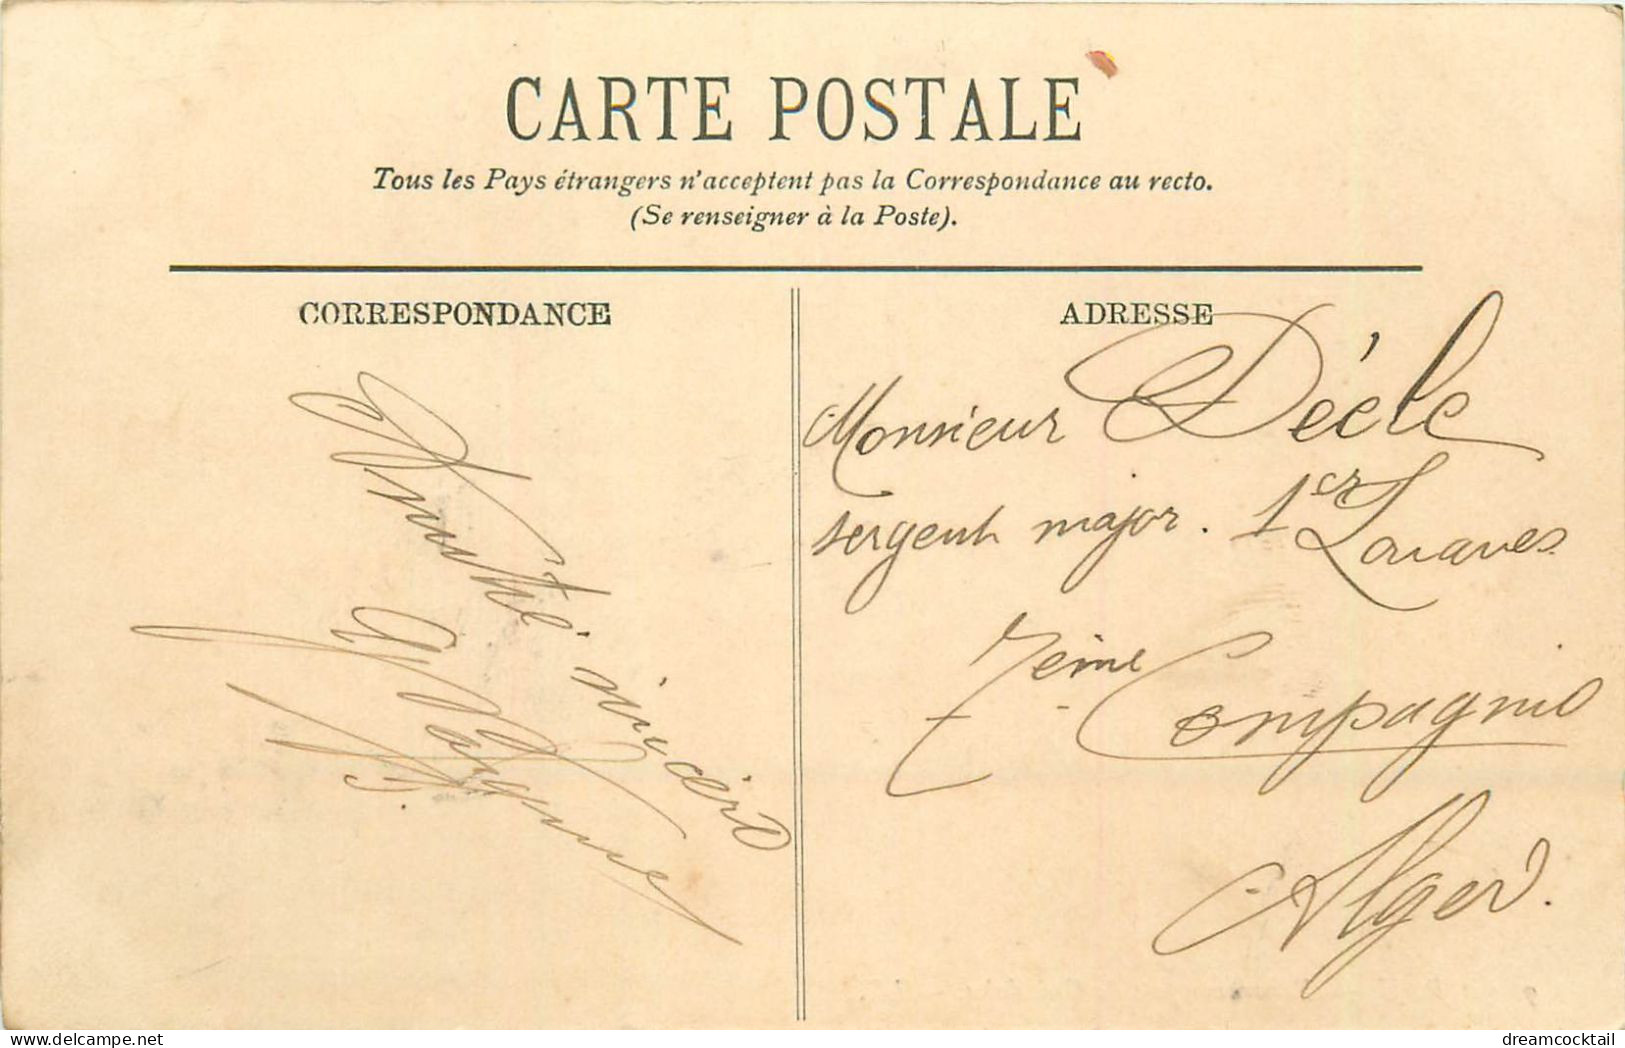 CARTE POSTALE
Tous les Pays étrangers n'acceptent pas la Correspondance au recto.
(Se renseigner à la Poste).
CORRESPONDANCE
Amitié sincère
ADRESSE
Monsieur Décle
sergent major. 1er Zouaves
7ème Compagnie
Alger.
www.delcampe.net
dreamcocktail